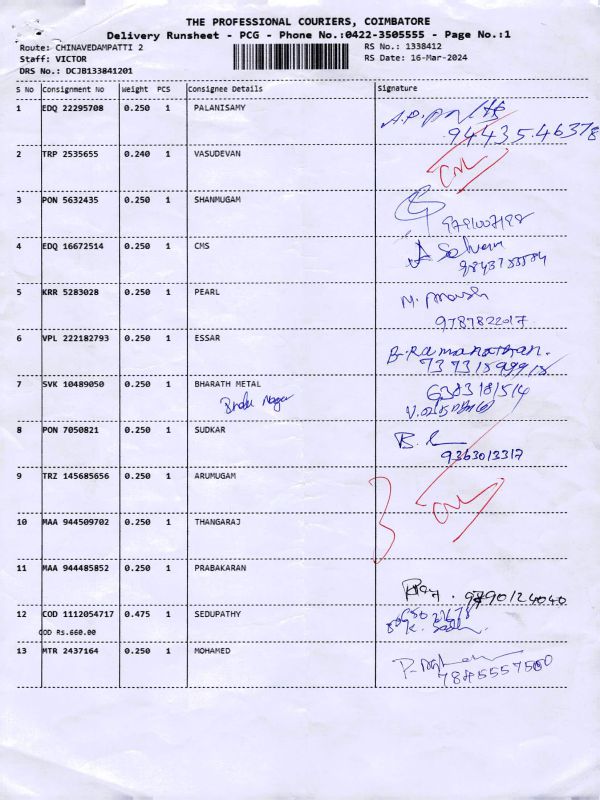 THE PROFESSIONAL COURIERS, COIMBATORE
Delivery Runsheet - PCG - Phone No.:0422-3505555 - Page No.:1
Route: CHINAVEDAMPATTI 2 RS No.: 1338412
Staff: VICTOR RS Date: 16-Mar-2024
DRS No.: DCJB133841201
S No Consignment No Weight PCS Consignee Details Signature
1 EDQ 22295708 0.250 1 PALANISAMY
94435.46378
2 TRP 2535655 0.240 1 VASUDEVAN
3 PON 5632435 0.250 1 SHANMUGAM
9791007198
4 EDQ 16672514 0.250 1 CMS
5 KRR 5283028 0.250 1 PEARL
9787822017
6 VPL 222182793 0.250 1 ESSAR B.Ramanathan.
7 SVK 10489050 0.250 1 BHARATH METAL 6383181514
Nagar
8 PON 7050821 0.250 1 SUDKAR
9363013317
9 TRZ 145685656 0.250 1 ARUMUGAM
10 MAA 944509702 0.250 1 THANGARAJ
11 MAA 944485852 0.250 1 PRABAKARAN
12 COD 1112054717 0.475 1 SEDUPATHY
COD Rs.660.00
13 MTR 2437164 0.250 1 MOHAMED
7845557500